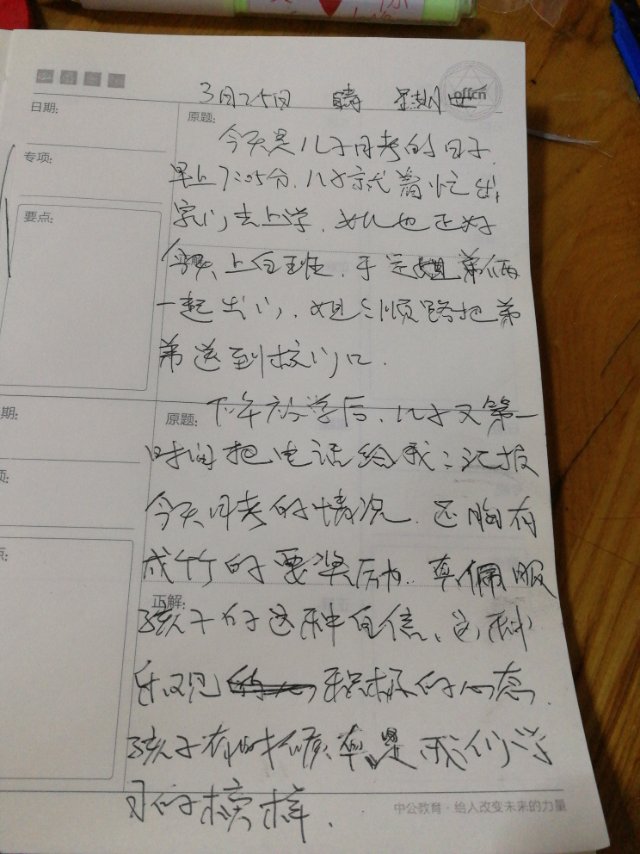 3月25日 晴 星期四
offcn
日期:
原题:
今天是儿子月考的日子,
专项:
早上7:05分,儿子就着忙出
家门去上学,女儿也正好
要点:
今天上白班,于是姐弟俩
一起出门,姐姐顺路把弟
弟送到校门口.
原题:
下午放学后,儿子又第一
时间把电话给我,汇报
今天月考的情况,还胸有
成竹的要奖励,真佩服
正解:
孩子的这种自信、这种
乐观 积极的心态,
孩子有时候真是我们学
习的榜样.
中公教育·给人改变未来的力量